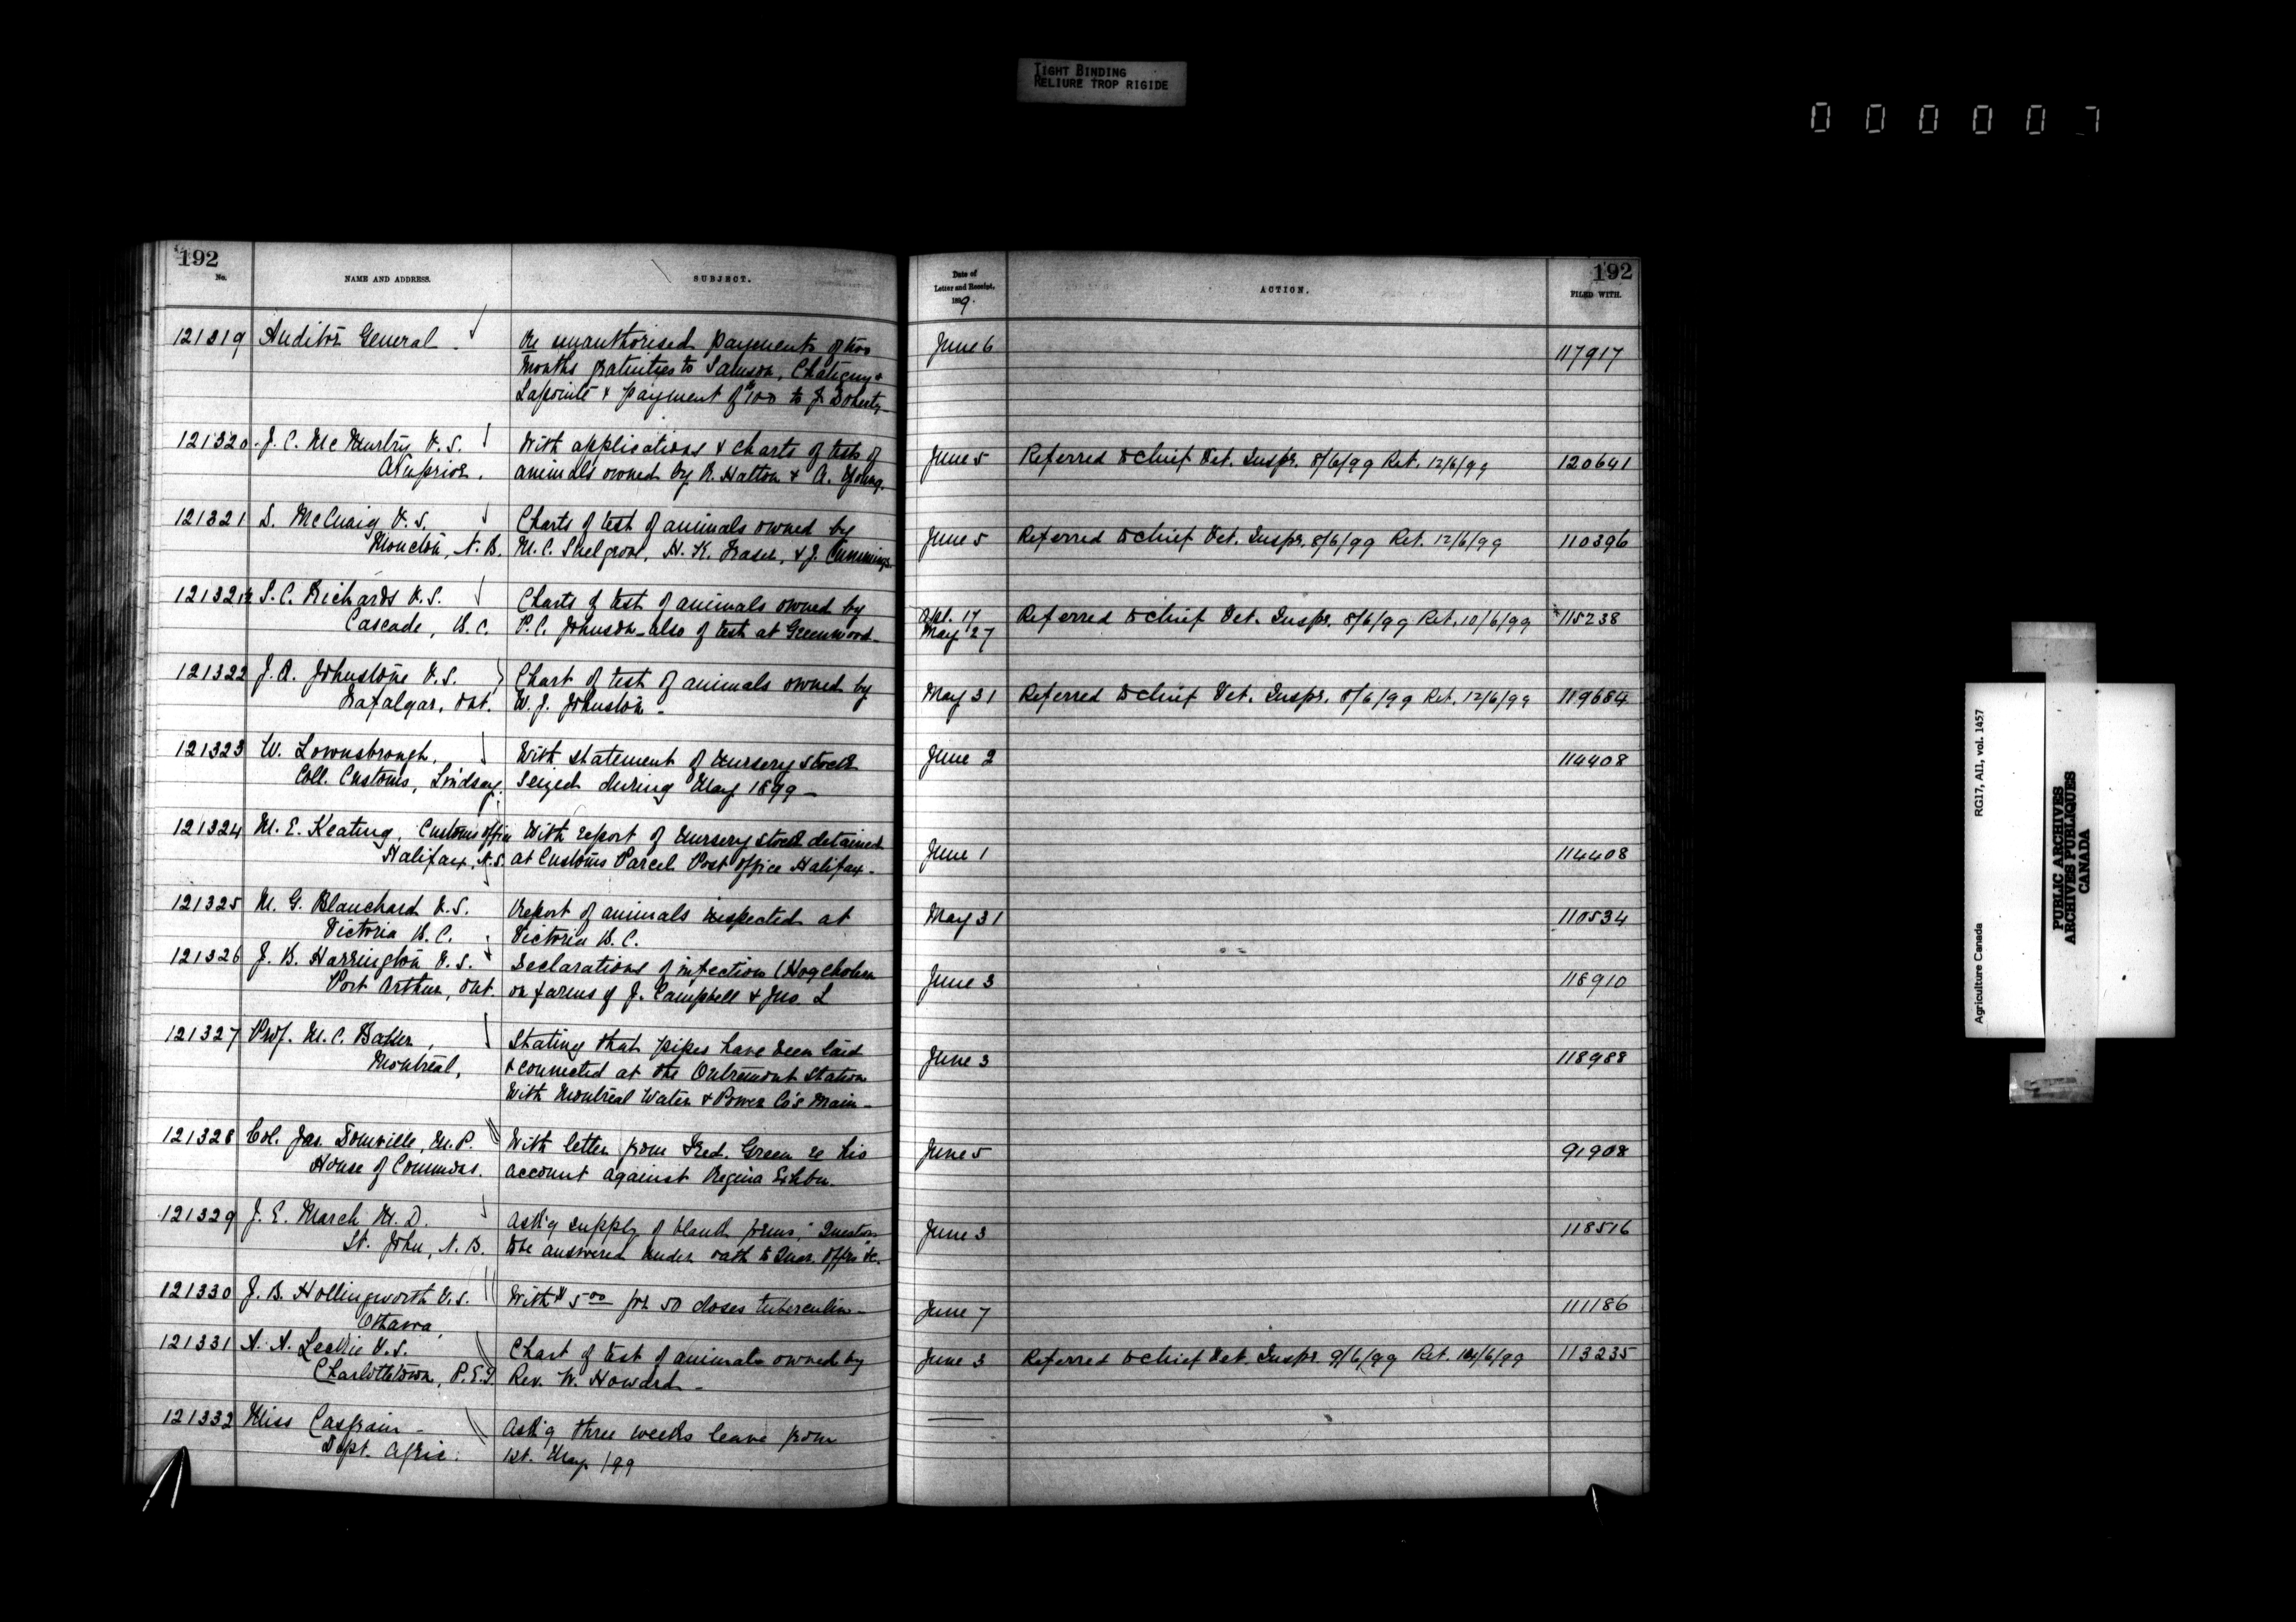 TIGHT BINDING
RELIURE TROP RIGIDE
000007
192
No.
NAME AND ADDRESS.
SUBJECT.
Date of
Letter and Receipt,
1899.
ACTION.
192
FILED WITH.
121319 Auditor General Re unauthorised payments of two June 6 117917
months gratuities to Samson, Chatigny &
Lapointe & payment of $100 to J. Doherty
121320 J. C. McMurtry V.S. With applications & charts of tests of June 5 Referred to Chief Vet. Inspr. 8/6/99 Ret. 12/6/99 120641
Arnprior. animals owned by R. Hatton & A. Young.
121321 D. McCuaig V.S. Charts of test of animals owned by
Moncton, N.B. M. C. Snelgrove, H. K. Fraser, & J. Cummings June 5 Referred to Chief Vet. Inspr. 8/6/99 Ret. 12/6/99 110396
121321½ S. C. Richards V.S. Charts of test of animals owned by Apl. 17 Referred to Chief Vet. Inspr. 8/6/99 Ret. 10/6/99 115238
Cascade, B.C. P. C. Johnson - also of test at Greenwood May 27
121322 J. A. Johnstone V.S. Chart of test of animals owned by
Trafalgar, Ont. W. J. Johnston - May 31 Referred to Chief Vet. Inspr. 8/6/99 Ret. 12/6/99 119684
121323 W. Lownsbrough, With statement of nursery stock June 2 114408
Coll. Customs, Lindsay. seized during May 1899 -
121324 M. E. Keating, Customs office With report of nursery stock detained
Halifax, N.S. at Customs Parcel Post office Halifax - June 1 114408
121325 M. G. Blanchard V.S. Report of animals inspected at May 31 110534
Victoria B.C. Victoria B.C.
121326 J. B. Harrington V.S. Declarations of infection (Hog cholera June 3 118910
Port Arthur, Ont. on farms of J. Campbell & Jno L
121327 Prof. M. C. Baker, Stating that pipes have been laid June 3 118988
Montreal, & connected at the Outremont Station
With Montreal Water & Power Co's Main -
121328 Col. Jas. Domville, M.P. With letter from Fred. Green re his June 5 91908
House of Commons. account against Regina Exhbn.
121329 J. E. March M.D. Ask'g supply of blank forms, "Questions June 3 118516
St. John, N.B. to be answered under oath to Quar. Offrs &c.
121330 J. B. Hollingworth V.S. With $5.00 for 50 doses tuberculin - June 7 111186
Ottawa,
121331 A. A. Leckie V.S. Chart of test of animals owned by June 3 Referred to Chief Vet. Inspr. 9/6/99 Ret. /6/99 113235
Charlottetown, P.E.I. Rev. W. Howard -
121332 Miss Casgrain - Ask'g three weeks leave from
Dept. Agric. 1st. May /99
Agriculture Canada RG17, AI1, vol. 1457
PUBLIC ARCHIVES
ARCHIVES PUBLIQUES
CANADA